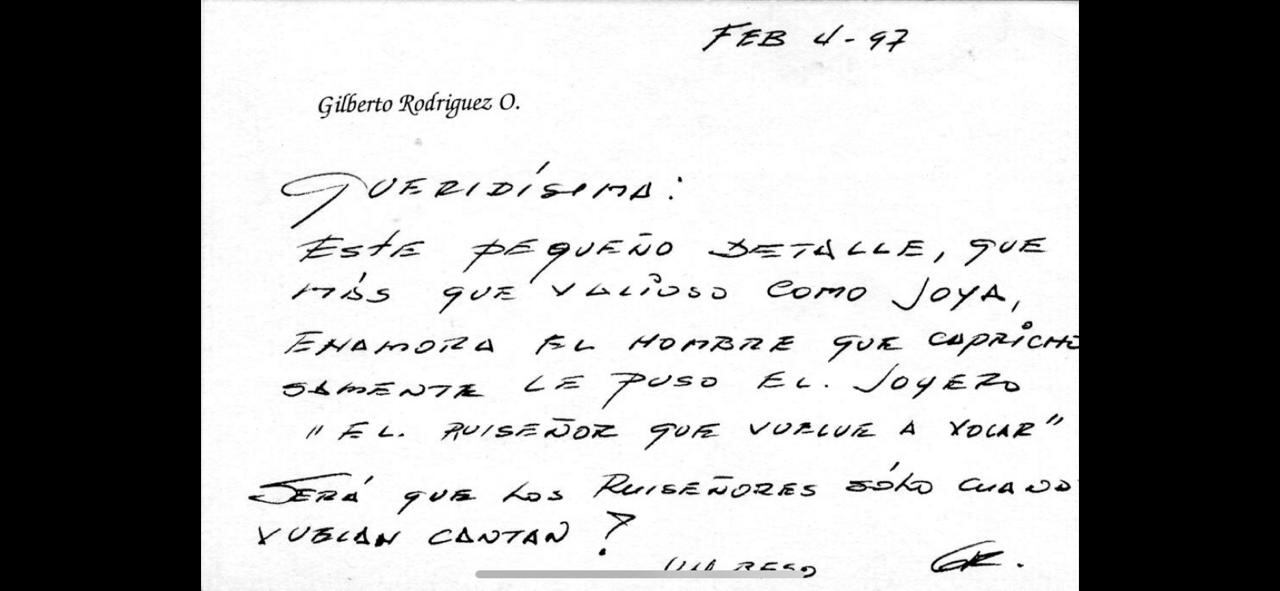 FEB 4-97
Gilberto Rodriguez O.
QUERIDÍSIMA:
ESTE PEQUEÑO DETALLE, QUE
MÁS QUE VALIOSO COMO JOYA,
ENAMORA EL NOMBRE QUE CAPRICHO
SAMENTE LE PUSO EL. JOYERO
"EL. RUISEÑOR QUE VUELVE A VOLAR"
SERÁ QUE LOS RUISEÑORES SÓLO CUANDO
VUELAN CANTAN?
BESO GR.